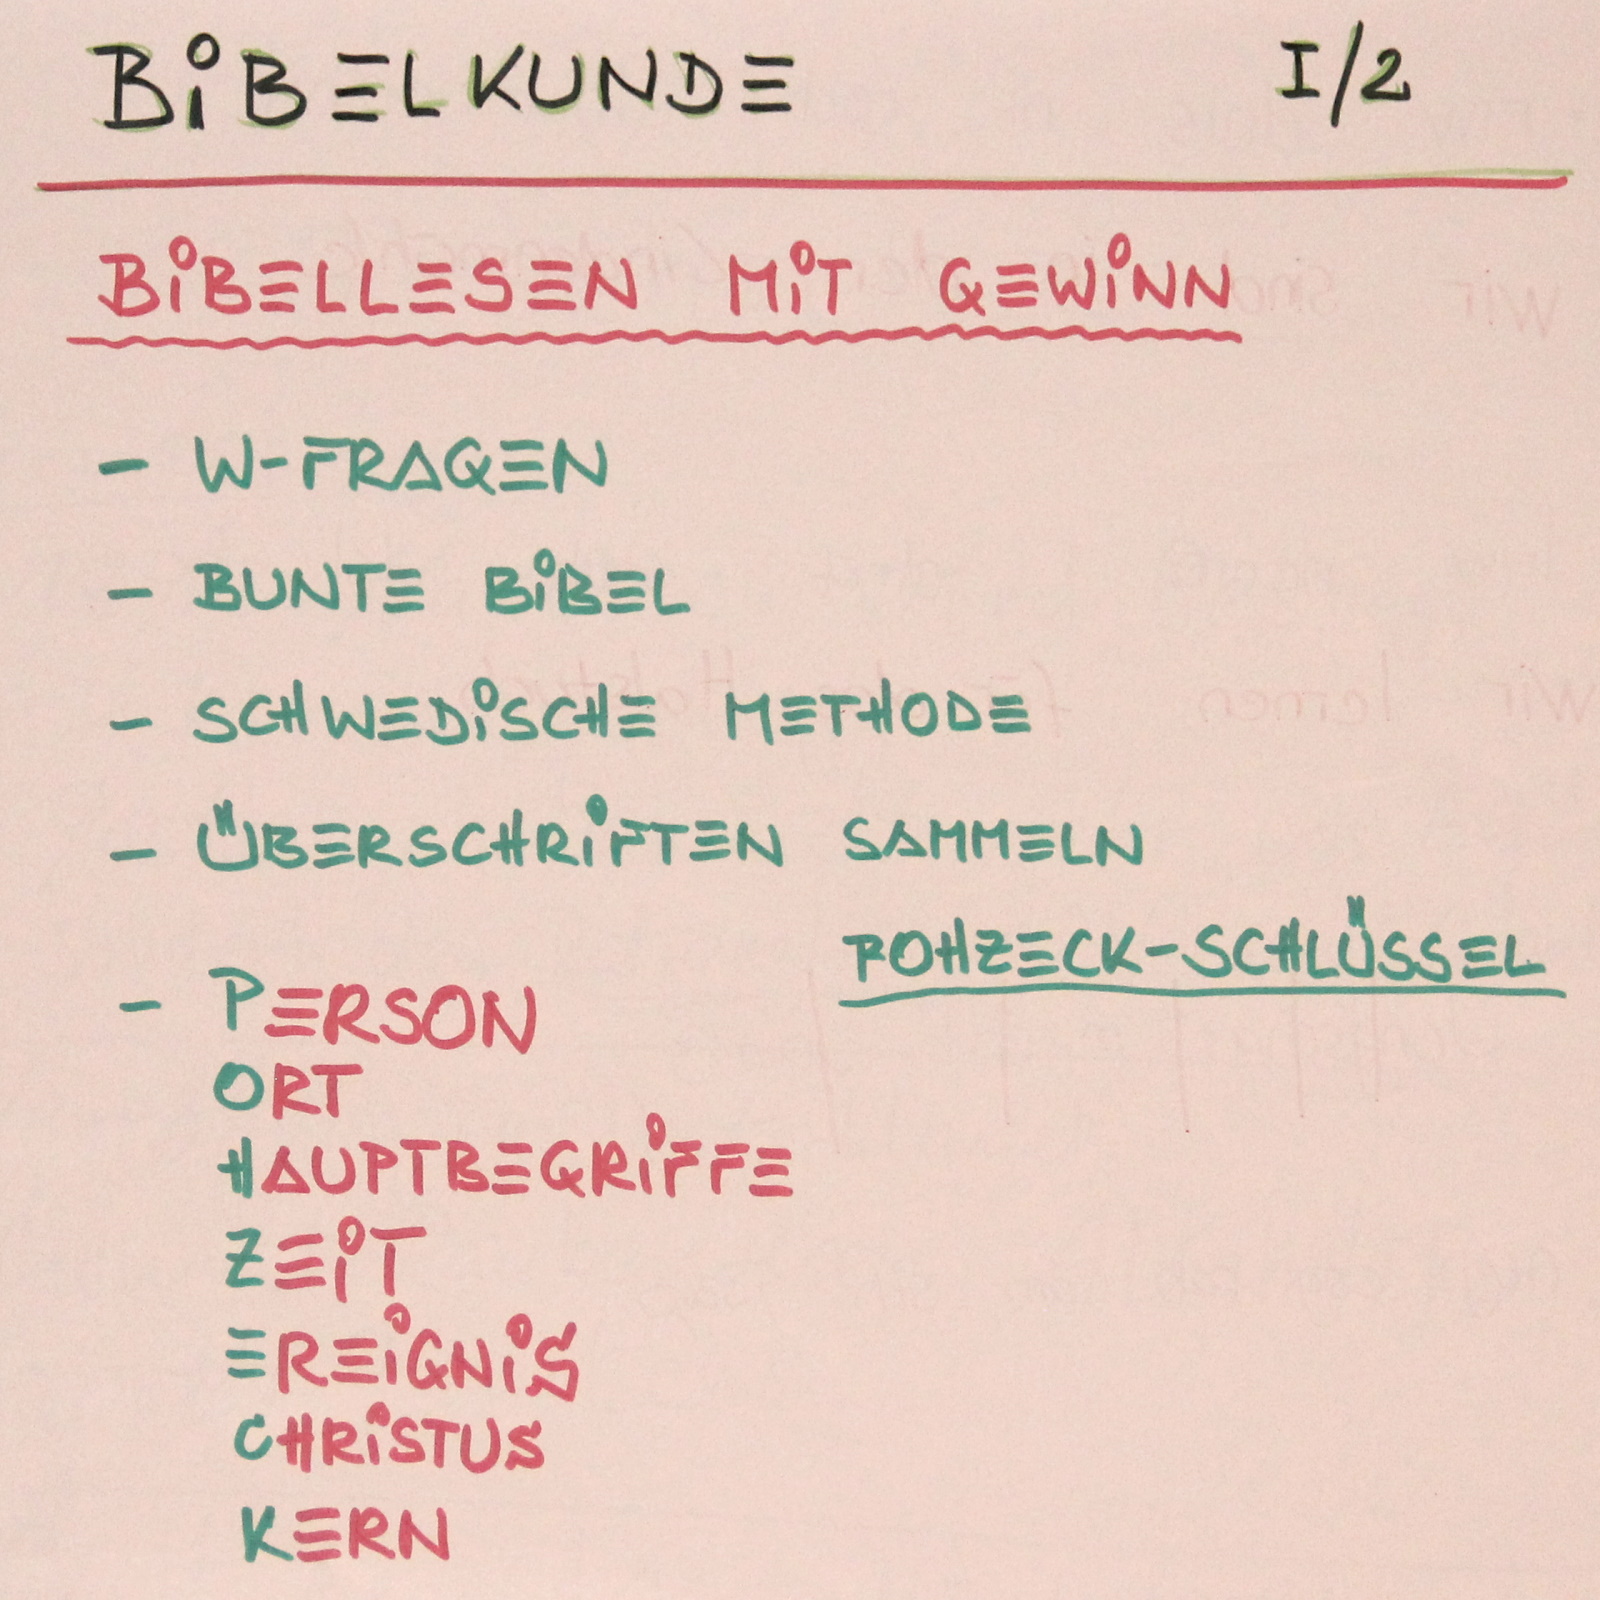 BiBELKUNDE I/2
BiBELLESEN MiT GEWiNN
- W-FRAGEN
- BUNTE BiBEL
- SCHWEDiSCHE METHODE
- ÜBERSCHRiFTEN SAMMELN
POHZECK-SCHLÜSSEL
- PERSON
ORT
HAUPTBEGRiFFE
ZEiT
EREiGNiS
CHRiSTUS
KERN